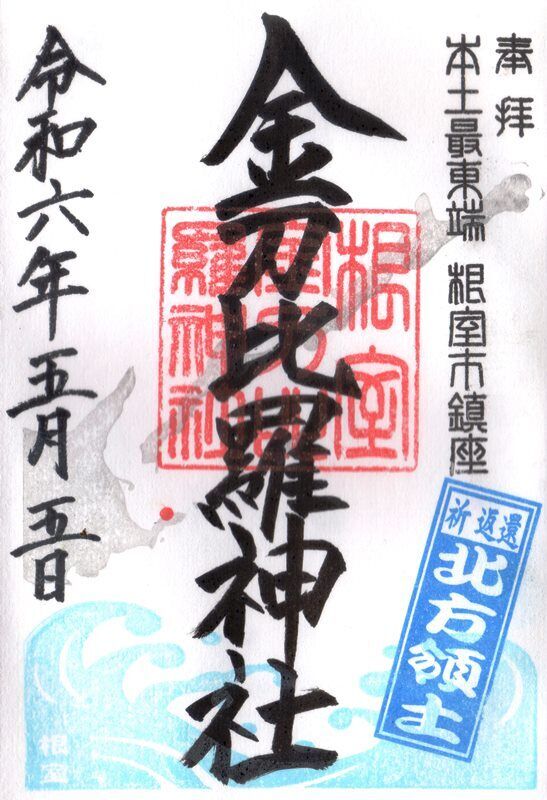 奉拝
本土最東端 根室市鎮座
金刀比羅神社
根室
金刀比
羅神社
令和六年五月五日
祈返還
北方領土
根室